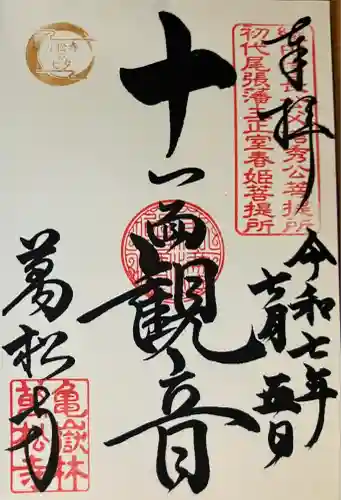 奉拝
令和七年
七月五日
初代尾張藩主正室春姫菩提所
十一面観音
萬松寺
亀嶽林
萬松寺